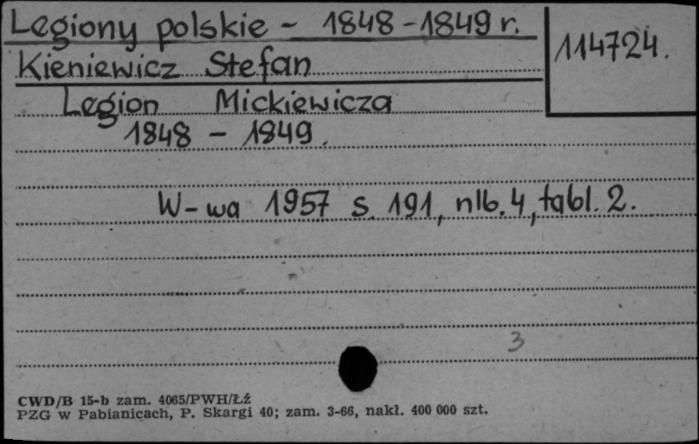 Legiony polskie - 1848-1849 r.
114724.
Kieniewicz Stefan
Legion Mickiewicza
1848 - 1849.
W-wa 1957 s. 191, nlb. 4, tabl. 2.
3
CWD/B 15-b zam. 4065/PWH/Łź
PZG w Pabianicach, P. Skargi 40; zam. 3-66, nakł. 400 000 szt.